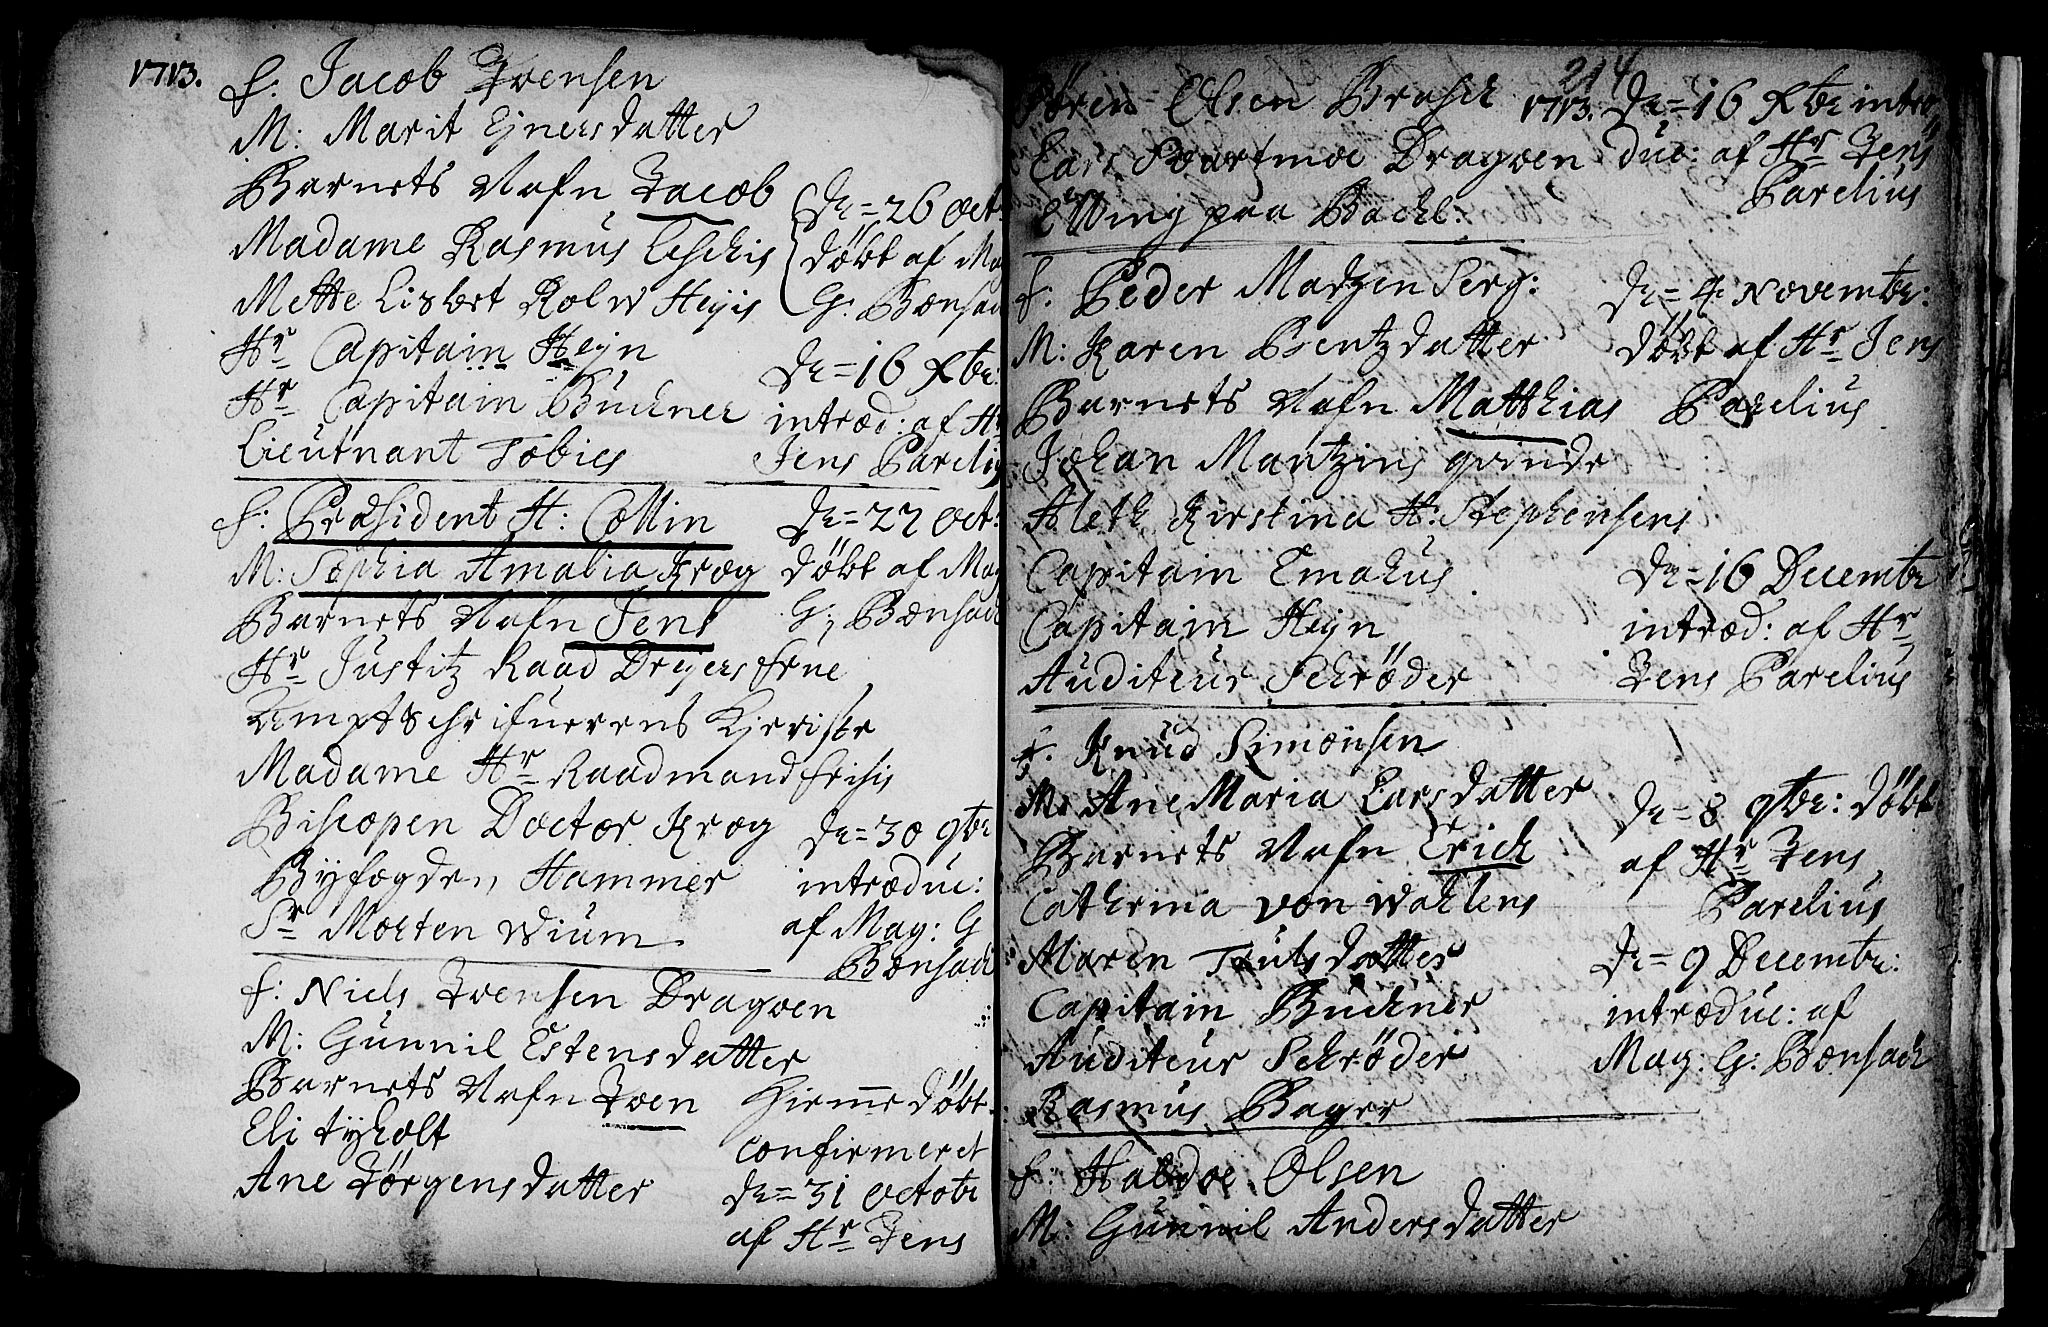 1713.
f: Jacob Iversen
M: Marit Ejnersdatter
Barnets Nafn Jacob
Madame Rasmus Eschis
Mette Lisbet Rolw Heyis
Hr Capitain Heyn
Hr Capitain Büchner
Lieutnant Tobies
De = 26 Oct:
döbt af Ma
G: Bonsach
De = 16 Xbr:
introd: af Hr
Jens Parelius
f: Præsident H: Collin
M: Sophia Amalia Krog
Barnets Nafn Jens
Hr Justitz Raad Dreyers Frue
Amptschrifuerens Kieriste
Madame Hr Raadmand Frisis
Biscopen Doctor Krog
Byfogden Hammer
Sr Morten Wium
De = 27 Oct:
döbt af Mag
G: Bonsach
De = 30 9br
introduc:
af Mag: G
Bonsach
f: Niels Iversen Dragoen
M: Gunnil Estensdatter
Barnets Nafn Iven
Eli tyholt
Ane Jörgensdatter
Hiemme döbt
confirmeret
De = 31 Octobr
af Hr Jens
214
Sören Olsen Brasch
Lars Svartmoe Dragoen
E Wing paa Bachl:
1713. De = 16 Xbr intro
duc: af Hr Jens
Parelius
f: Peder Matzen Serg:
M: Karen Bentzdatter
Barnets Nafn Matthias
Johan Mantzins qvinde
Aleth Kirstina H: Stephensens
Capitain Emahus
Capitain Heyn
Auditeur Schröder
De = 4 Novembr:
döbt af Hr Jens
Parelius
De = 16 Decembr
introd: af Hr
Jens Parelius
f: Knud Simonsen
M: Ane Maria Larsdatter
Barnets Nafn Erich
Cathrina von Wahlens
Maren Trulsdatter
Capitain Büchner
Auditeur Schröder
Rasmus Bager
De = 8 9br: döbt
af Hr Jens
Parelius
De = 9 Decembr:
introduc: af
Mag: G: Bonsach
f: Haldoe Olsen
M: Gunnil Andersdatter